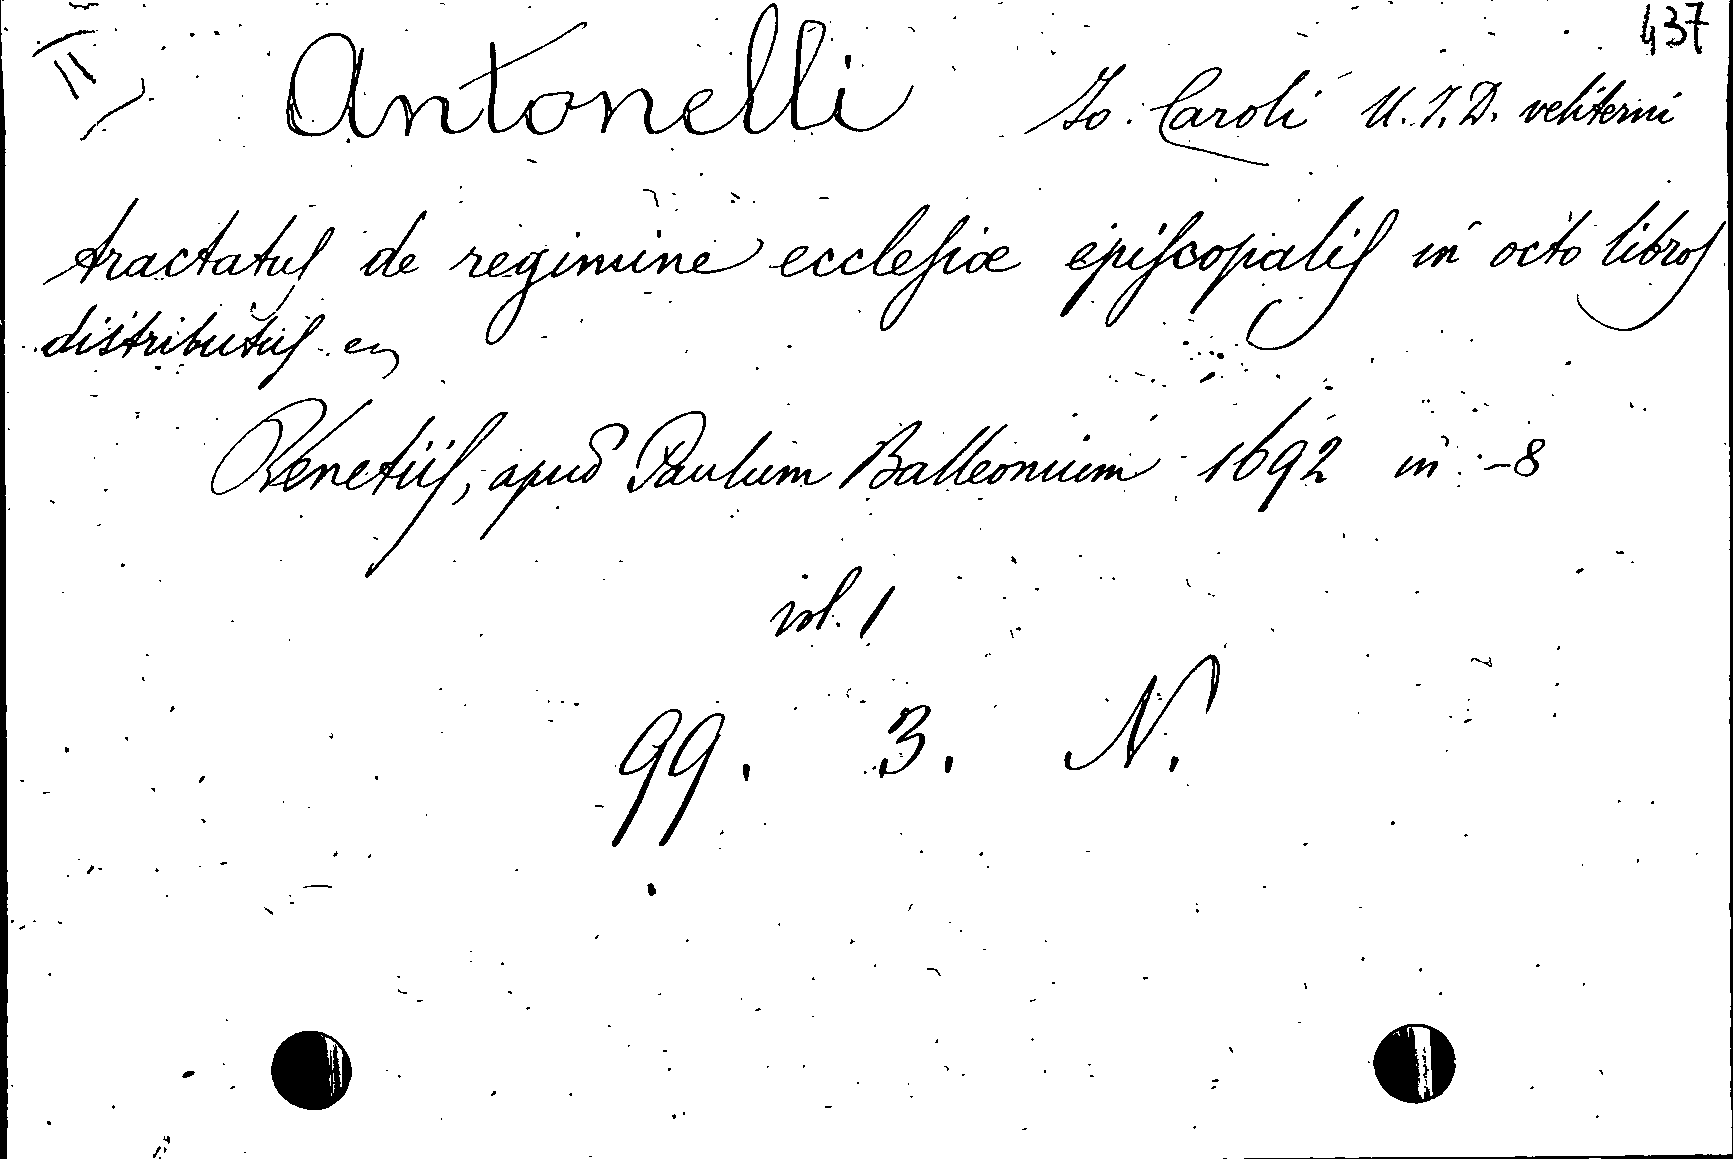 437
II
Antonelli Jo: Caroli U. J. D. veliterni
tractatuſ de regimine eccleſiæ epiſcopaliſ in octo libroſ
distributuſ
Venetiiſ, apud Paulum Balleonium 1692 in -8
vol. 1
99. 3. N.